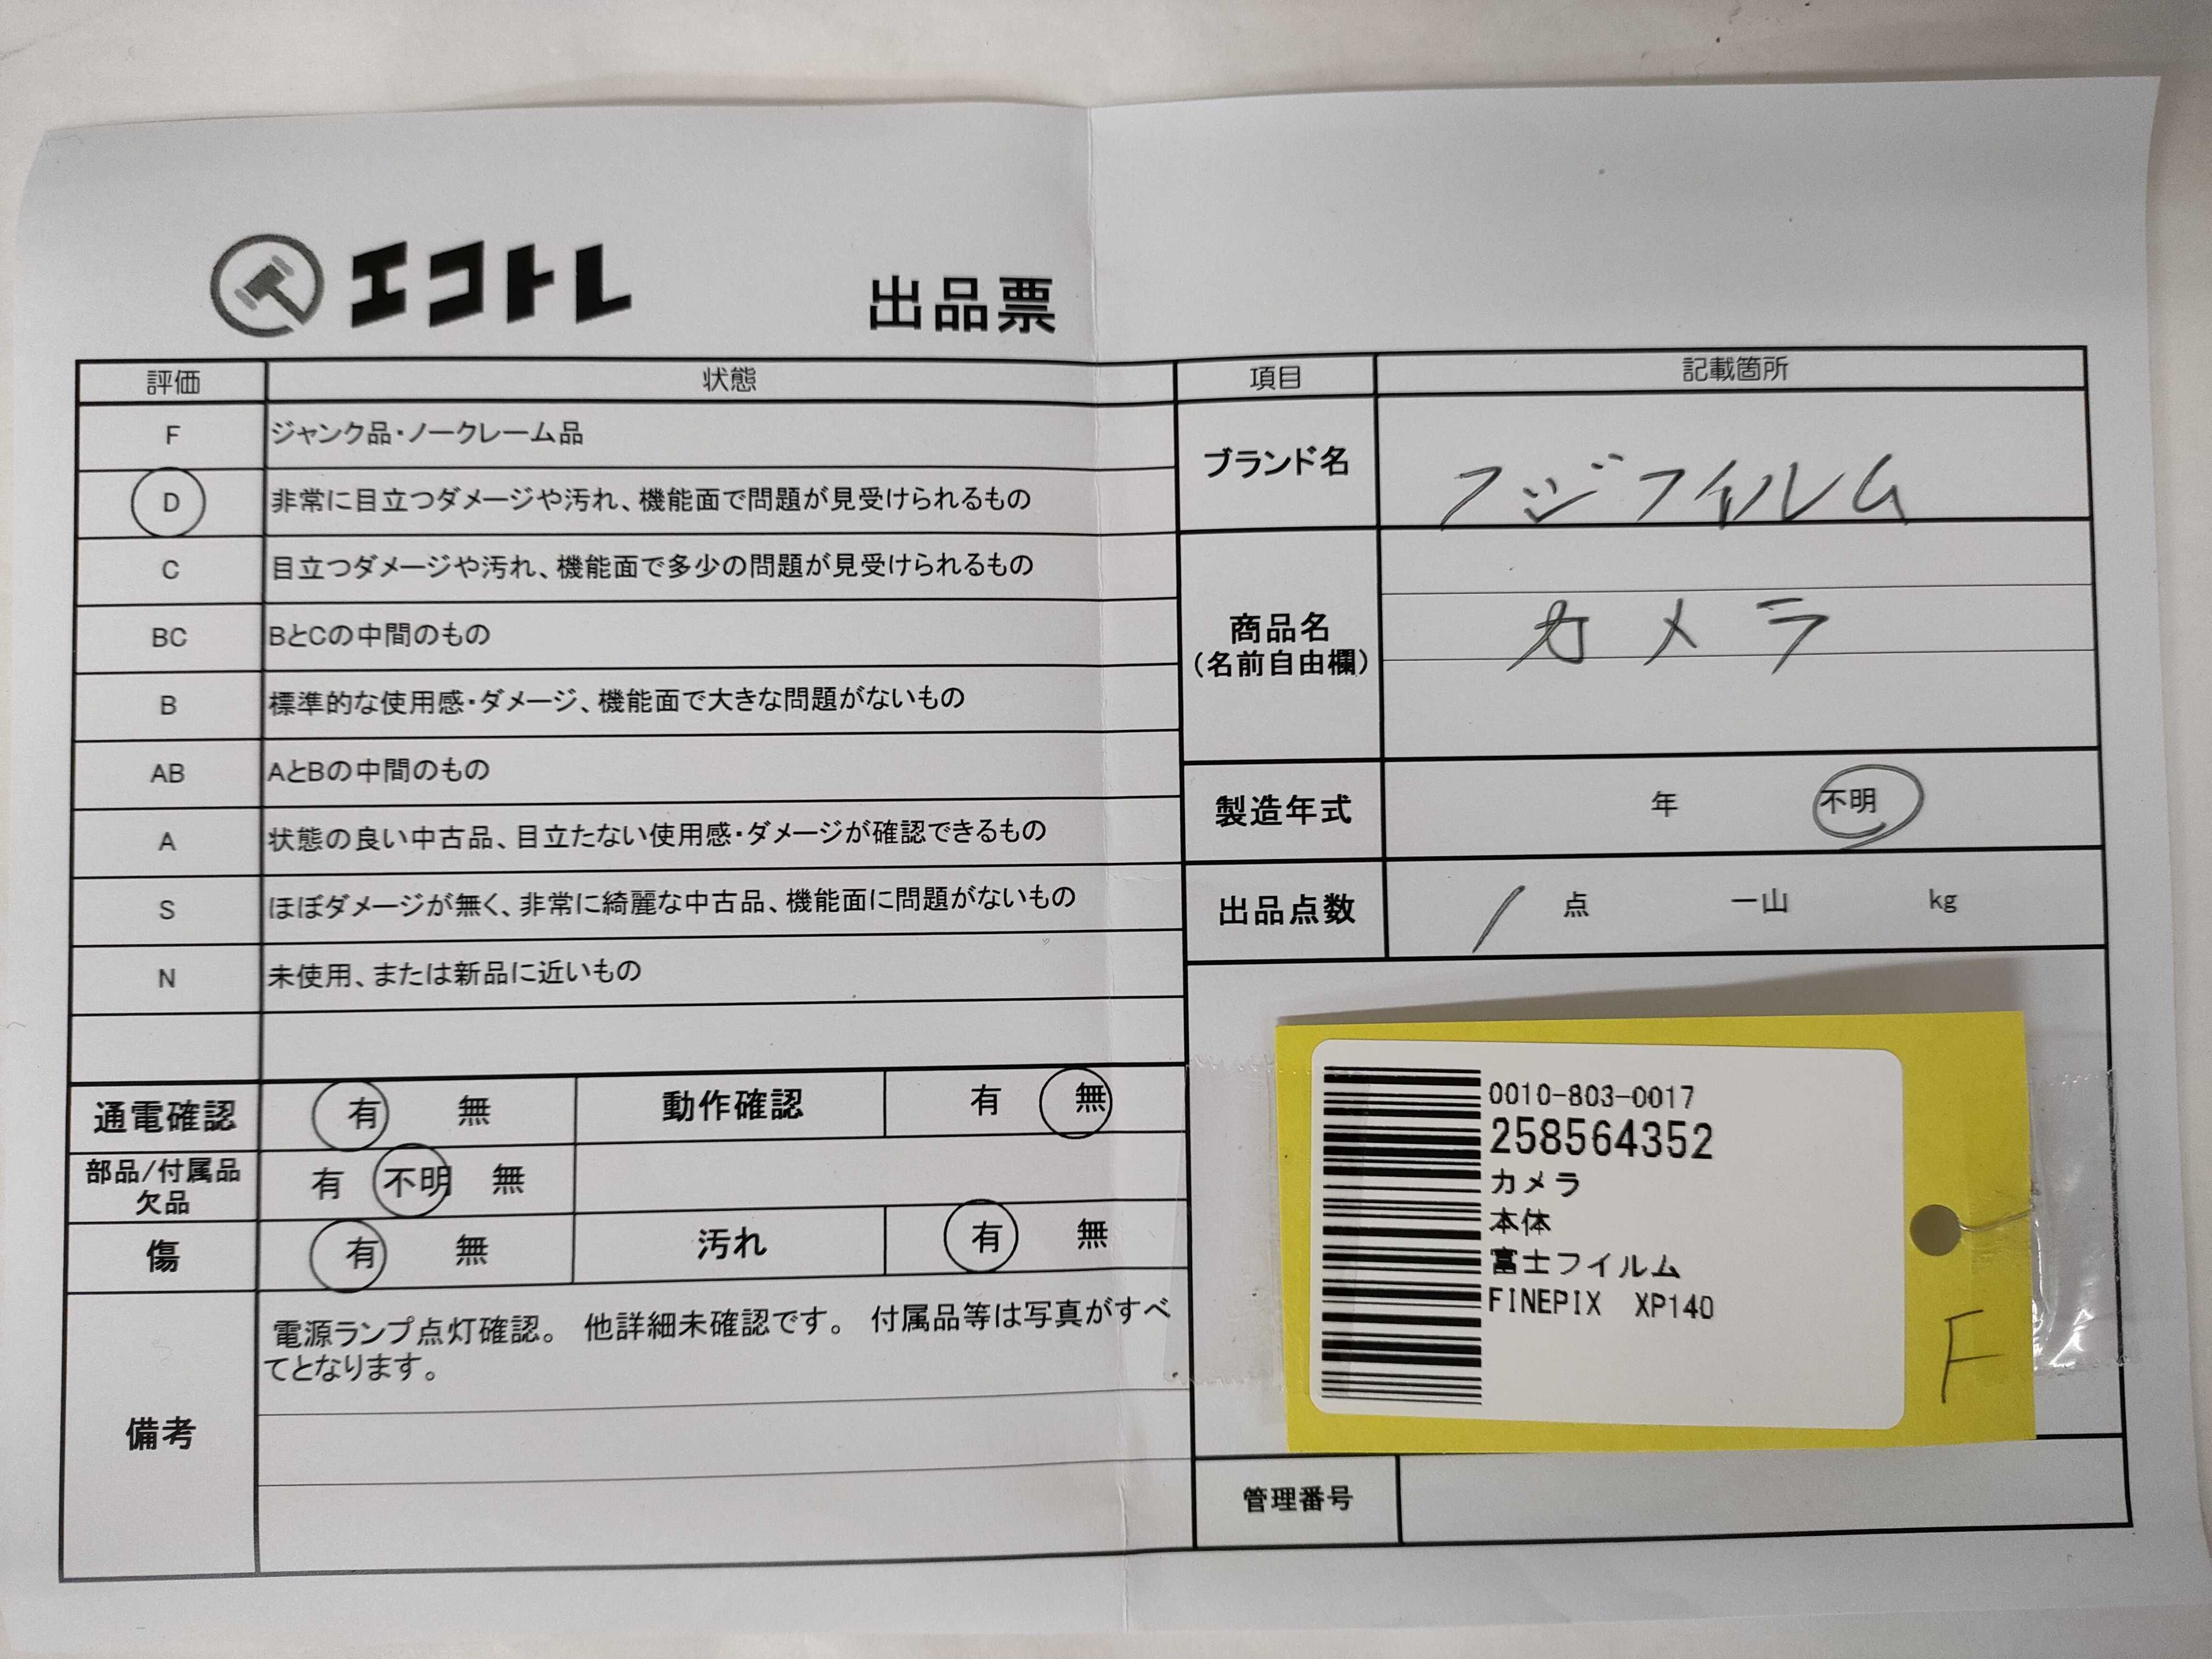 エコトレ
出品票
評価 状態
F ジャンク品・ノークレーム品
D 非常に目立つダメージや汚れ、機能面で問題が見受けられるもの
C 目立つダメージや汚れ、機能面で多少の問題が見受けられるもの
BC BとCの中間のもの
B 標準的な使用感・ダメージ、機能面で大きな問題がないもの
AB AとBの中間のもの
A 状態の良い中古品、目立たない使用感・ダメージが確認できるもの
S ほぼダメージが無く、非常に綺麗な中古品、機能面に問題がないもの
N 未使用、または新品に近いもの
通電確認 有 無 動作確認 有 無
部品/付属品
欠品 有 不明 無
傷 有 無 汚れ 有 無
備考
電源ランプ点灯確認。 他詳細未確認です。 付属品等は写真がすべ
てとなります。
項目 記載箇所
ブランド名 フジフイルム
商品名
(名前自由欄) カメラ
製造年式 年 不明
出品点数 1 点 一山 kg
0010-803-0017
258564352
カメラ
本体
富士フイルム
FINEPIX XP140
F
管理番号